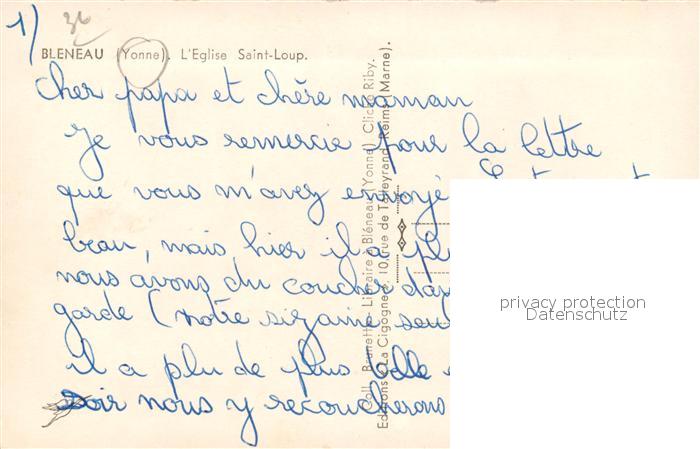 1)
36
BLENEAU (Yonne). L'Eglise Saint-Loup.
cher papa et chère maman
Je vous remercie pour la lettre
que vous m'avez envoyé
beau, mais hier il a
nous avons du coucher
garde (notre sizaine
il a plu de plus belle
soir nous y recoucherons
Coll. Brunette, Libraire à Bléneau (Yonne) Cliché Riby.
Editions "La Cigogne", 10, rue de Talleyrand, Reims (Marne).
privacy protection
Datenschutz